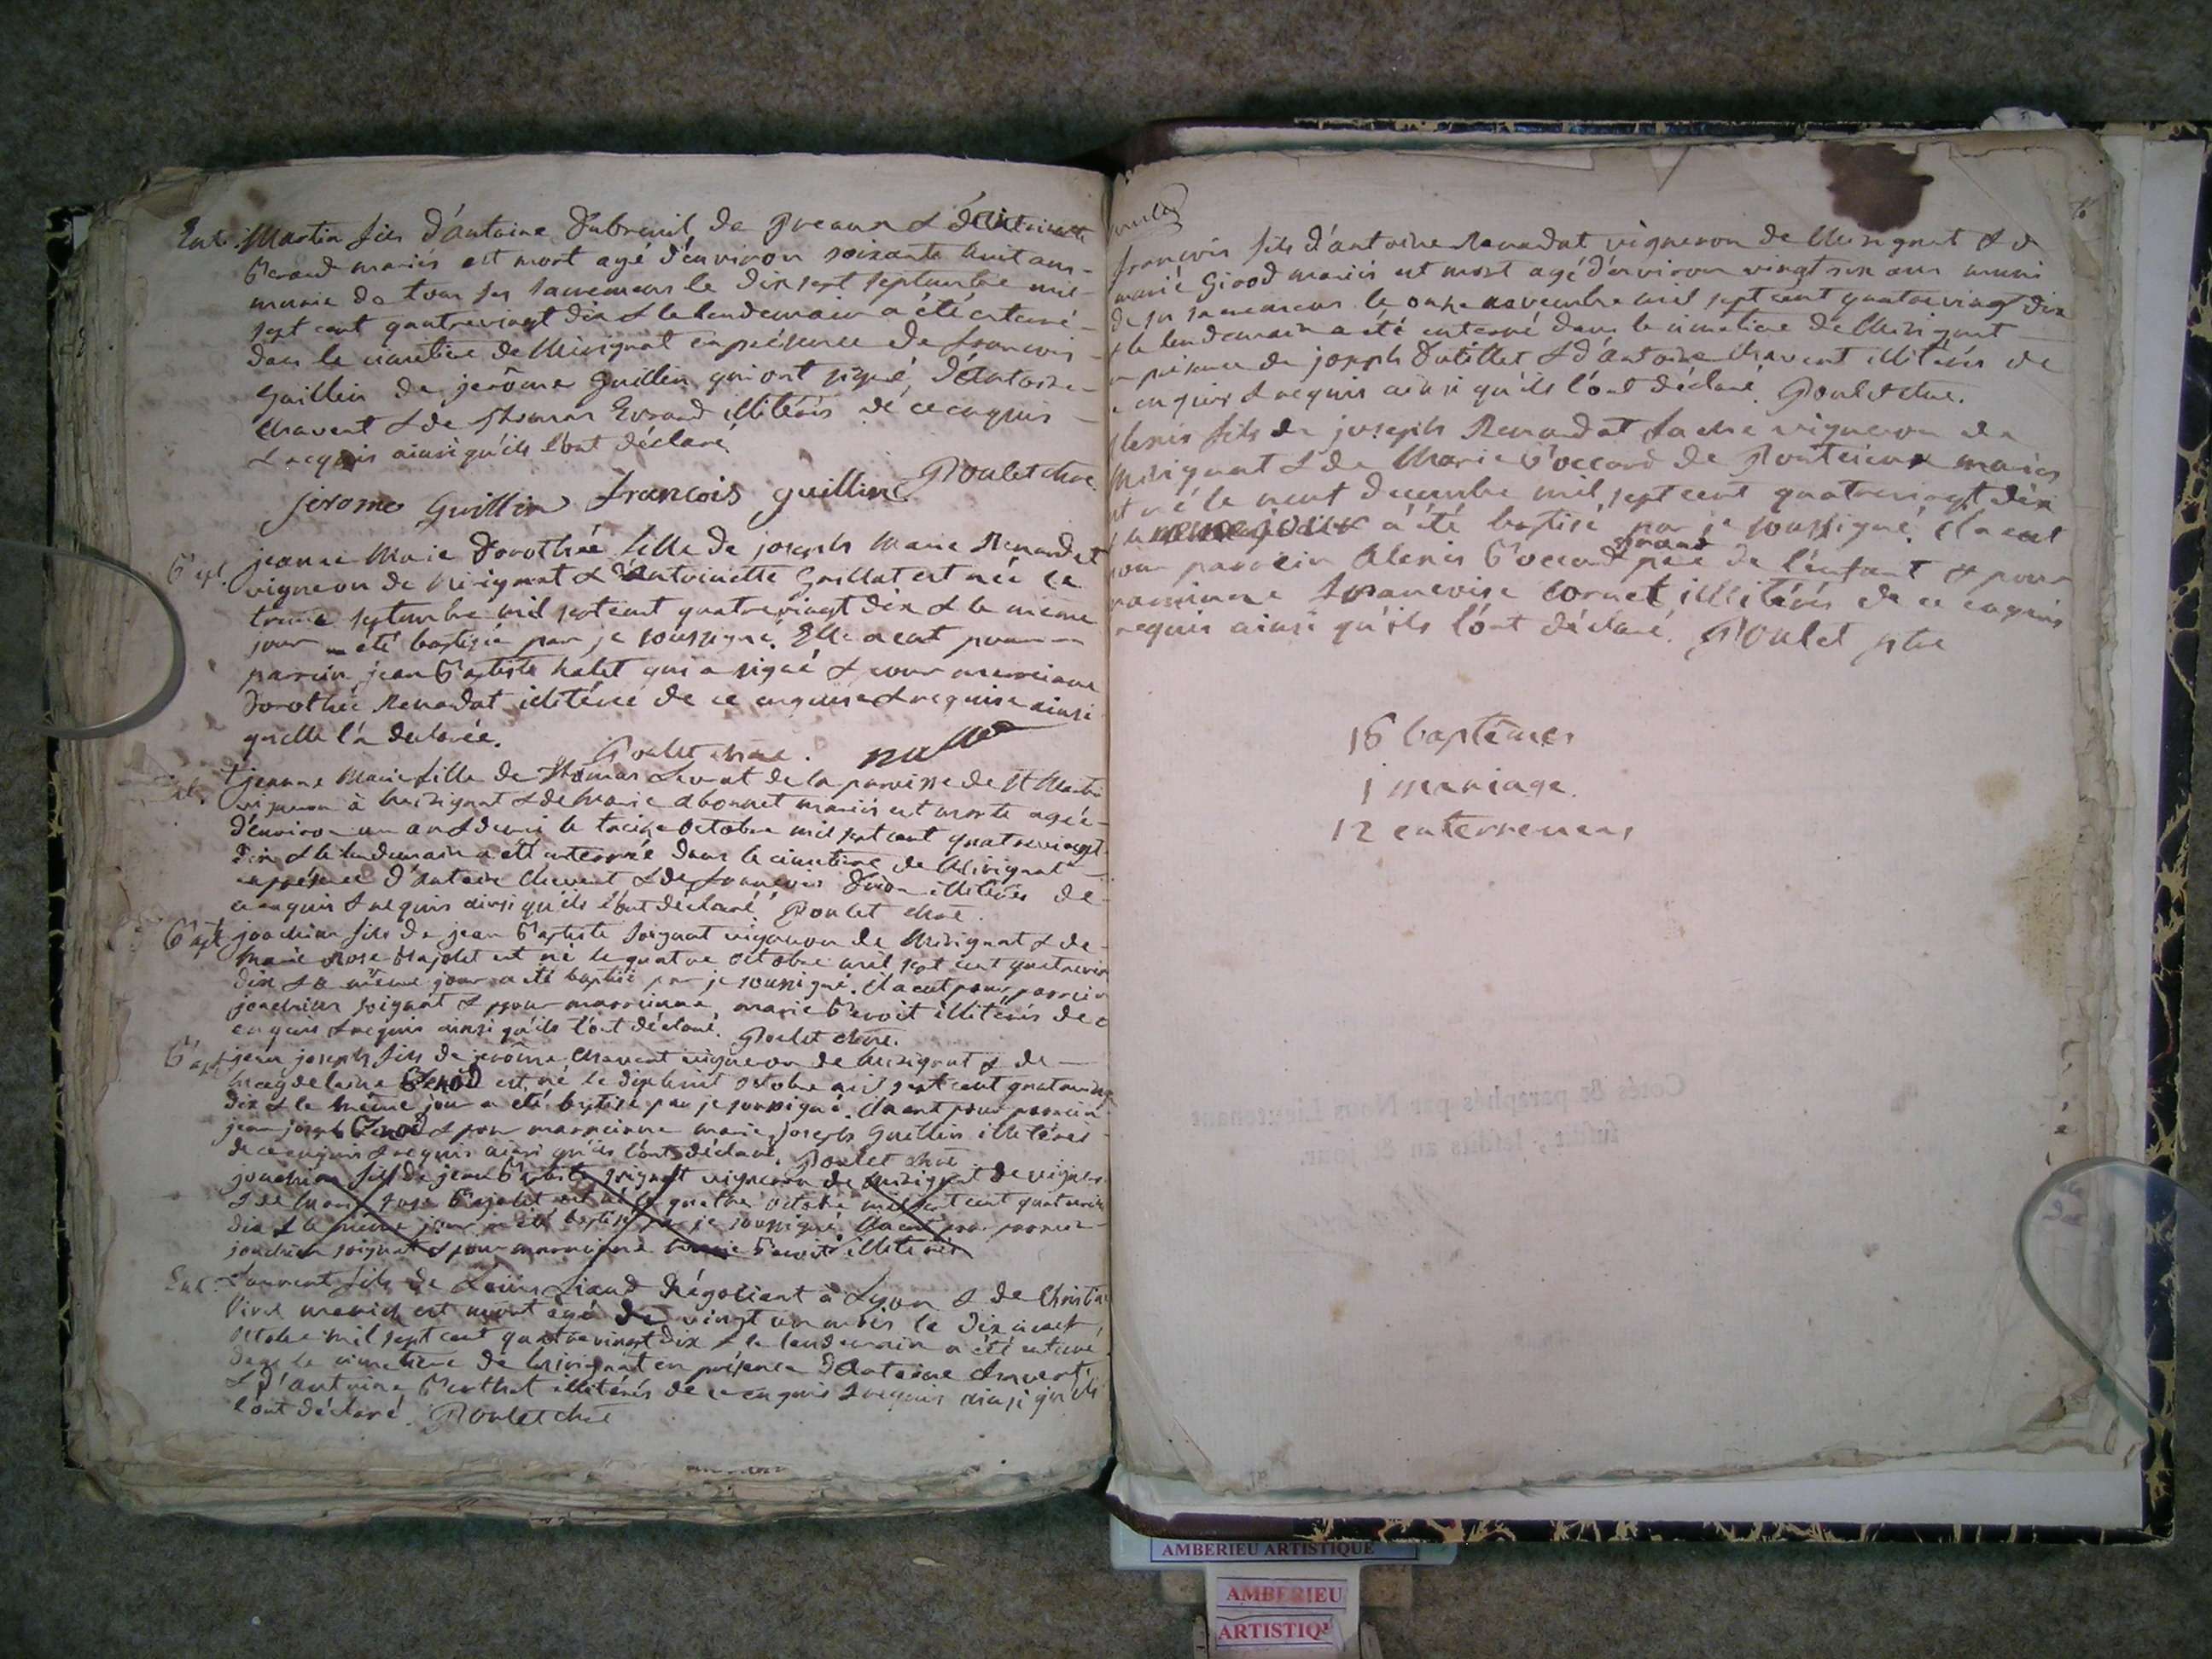 Ent. Martin fils d'antoine Dubreuil de preaux & d'Antoinette
Beraud mariés est mort agé d'environ soixante huit ans
munie de tous ses sacremens le dix sept septembre mil
sept cent quatrevingt dix & le lendemain a été enterré
dans le cimetiere de Mérignat en présence de françois
Guillin de jerôme Guillin qui ont signé, d'Antoine
Chavent & de thomas Evrard illiterés de ce enquis
& requis ainsi qu'ils l'ont déclaré
jerome Guillin françois guillin Poulet chre
Bapt. jeanne Marie Dorothée fille de joseph Marie Renaudat
vigneron de Mérignat & d'Antoinette Guillat est née le
trente septembre mil sept cent quatrevingt dix & le même
jour a été baptisée par je soussigné. Elle a eut pour
parrein jean Baptiste halet qui a signé & pour marreinne
Dorothée Renadat illiterée de ce enquise & requise ainsi
quelle l'a declarée.
Poulet chre.
jeanne Marie fille de thomas Levrat de la paroisse de St Martin
vigneron à Merignat & de Marie abonnet mariés est morte agée
d'environ un an & demi le treize octobre mil sept cent quatrevingt
dix & le lendemain a été enterrée dans le cimetiere de Mérignat
en présence d'antoine Chavent & de françois illiterés de
ce enquis & requis ainsi qu'ils l'ont déclaré. Poulet chre.
Bapt. joachim fils de jean Baptiste soignat vigneron de Mérignat & de
Marie Rose Bajolet est né le quatre octobre mil sept cent quatrevin
dix & le même jour a été baptisé par je soussigné. il a eut pour parrein
joachim soignat & pour marreinne marie Benoit illiterés de c
enquis & requis ainsi qu'ils l'ont déclaré. Poulet chre.
Bapt. jean joseph fils de jerôme Chavent vigneron de Merignat & de
Magdelaine est né le dix huit octobre mil sept cent quatreving
dix & le même jour a été baptisé par je soussigné. il a eut pour parrein
jean joseph & pour marreinne marie joseph Guillin illiterés
de ce enquis & requis ainsi qu'ils l'ont déclaré. Poulet chre
joachim fils de jean Baptiste soignat vigneron de Merignat
& de Marie Rose Bajolet est né le quatre octobre mil sept cent quatrevin
dix & le même jour a été baptisé par je soussigné. il a eut pour parrein
joachim soignat & pour marreinne marie Benoit illiterés
Ent. Laurent fils de Louis Liaud Négociant à Lyon & de Christine
Viret mariés est mort agé de vingt un mois le dix neuf
octobre mil sept cent quatrevingt dix & le lendemain a été enterré
dans le cimetiere de Mérignat en présence d'Antoine Chavent
& d'antoine Berthet illiterés de ce enquis & requis ainsi qu'ils
l'ont déclaré. Poulet chre
françois fils d'antoine Renadat vigneron de Merignat & d
marie Girod mariés est mort agé d'environ vingt six ans muni
de ses sacremens le onze novembre mil sept cent quatrevingt dix
& le lendemain a été enterré dans le cimetiere de Mérignat
en présence de joseph Dutillet & d'antoine Chavent illiterés de
ce enquis & requis ainsi qu'ils l'ont déclaré. Poulet chre.
Alexis fils de joseph Renaudat vigneron de
Mérignat & de Marie Boccard de mariés
est né le neuf decembre mil sept cent quatrevingt dix
a été baptisé par je soussigné. il a eut
pour parrein Alexis Boccard grand pere de l'enfant & pour
marreinne françoise Cornet illitérés de ce enquis
requis ainsi qu'ils l'ont déclaré. Poulet ptre
16 baptêmes
1 mariage.
12 enterremens
Cotés & paraphés par Nous Lieutenant
susdit, lesdits an & jour.
AMBERIEU ARTISTIQUE
AMBERIEU
ARTISTIQ